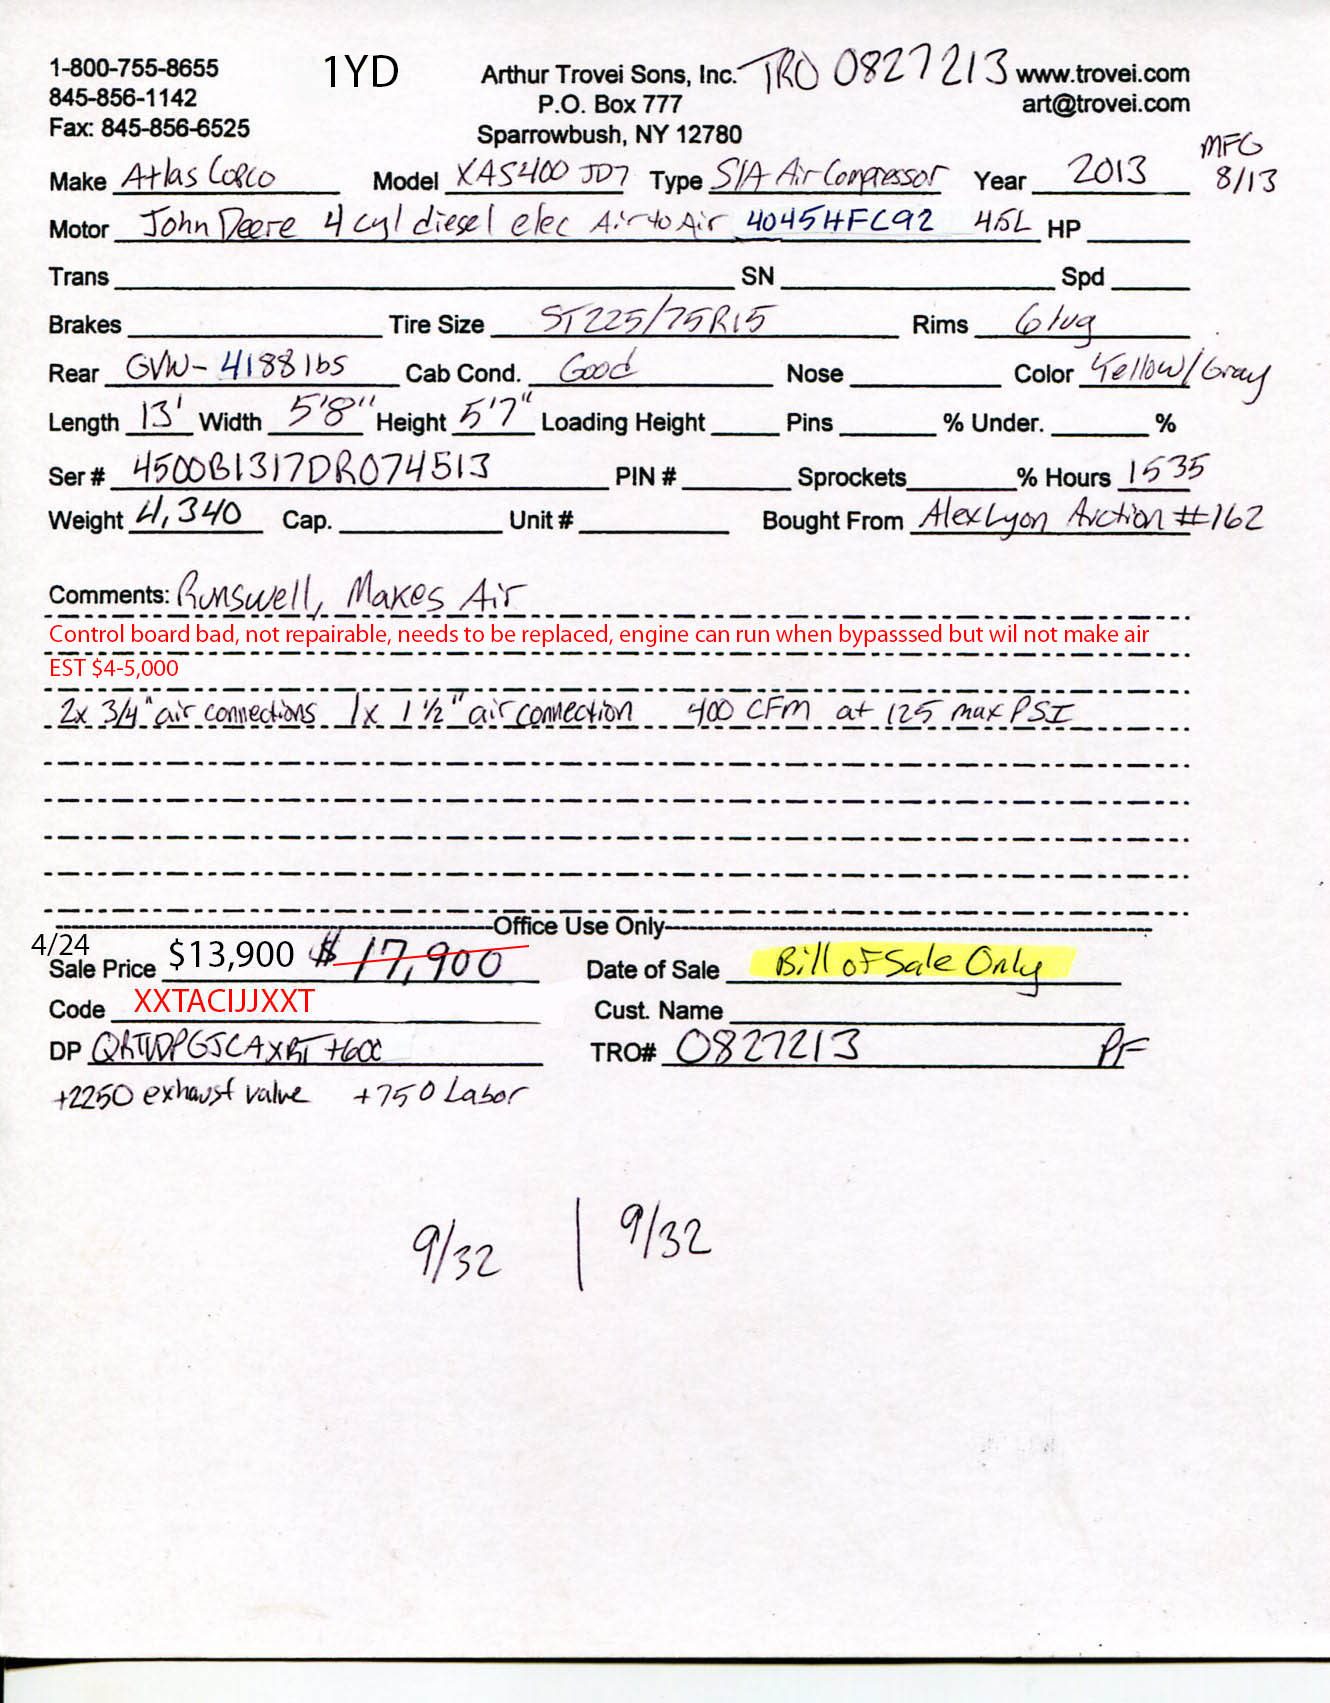 1-800-755-8655 1YD Arthur Trovei Sons, Inc. TRO 0827213 www.trovei.com
845-856-1142 P.O. Box 777 art@trovei.com
Fax: 845-856-6525 Sparrowbush, NY 12780
MFG
Make Atlas Copco Model XAS400 JD7 Type S/A Air Compressor Year 2013 8/13
Motor John Deere 4 cyl diesel elec Air to Air 4045HFC92 4.5L HP
Trans SN Spd
Brakes Tire Size ST225/75R15 Rims 6 lug
Rear GVW- 4188 lbs Cab Cond. Good Nose Color Yellow/Gray
Length 13' Width 5'8" Height 5'7" Loading Height Pins % Under. %
Ser # 4500B1317DR074513 PIN # Sprockets % Hours 1535
Weight 4,340 Cap. Unit # Bought From Alex Lyon Auction #162
Comments: Runs well, Makes Air
Control board bad, not repairable, needs to be replaced, engine can run when bypasssed but wil not make air
EST $4-5,000
2x 3/4" air connections 1x 1 1/2" air connection 400 CFM at 125 max PSI
Office Use Only
4/24
Sale Price $13,900 $17,900 Date of Sale Bill of Sale Only
Code XXTACIJJXXT Cust. Name
DP +600 TRO# 0827213 PF
+2250 exhaust valve +750 Labor
9/32 | 9/32